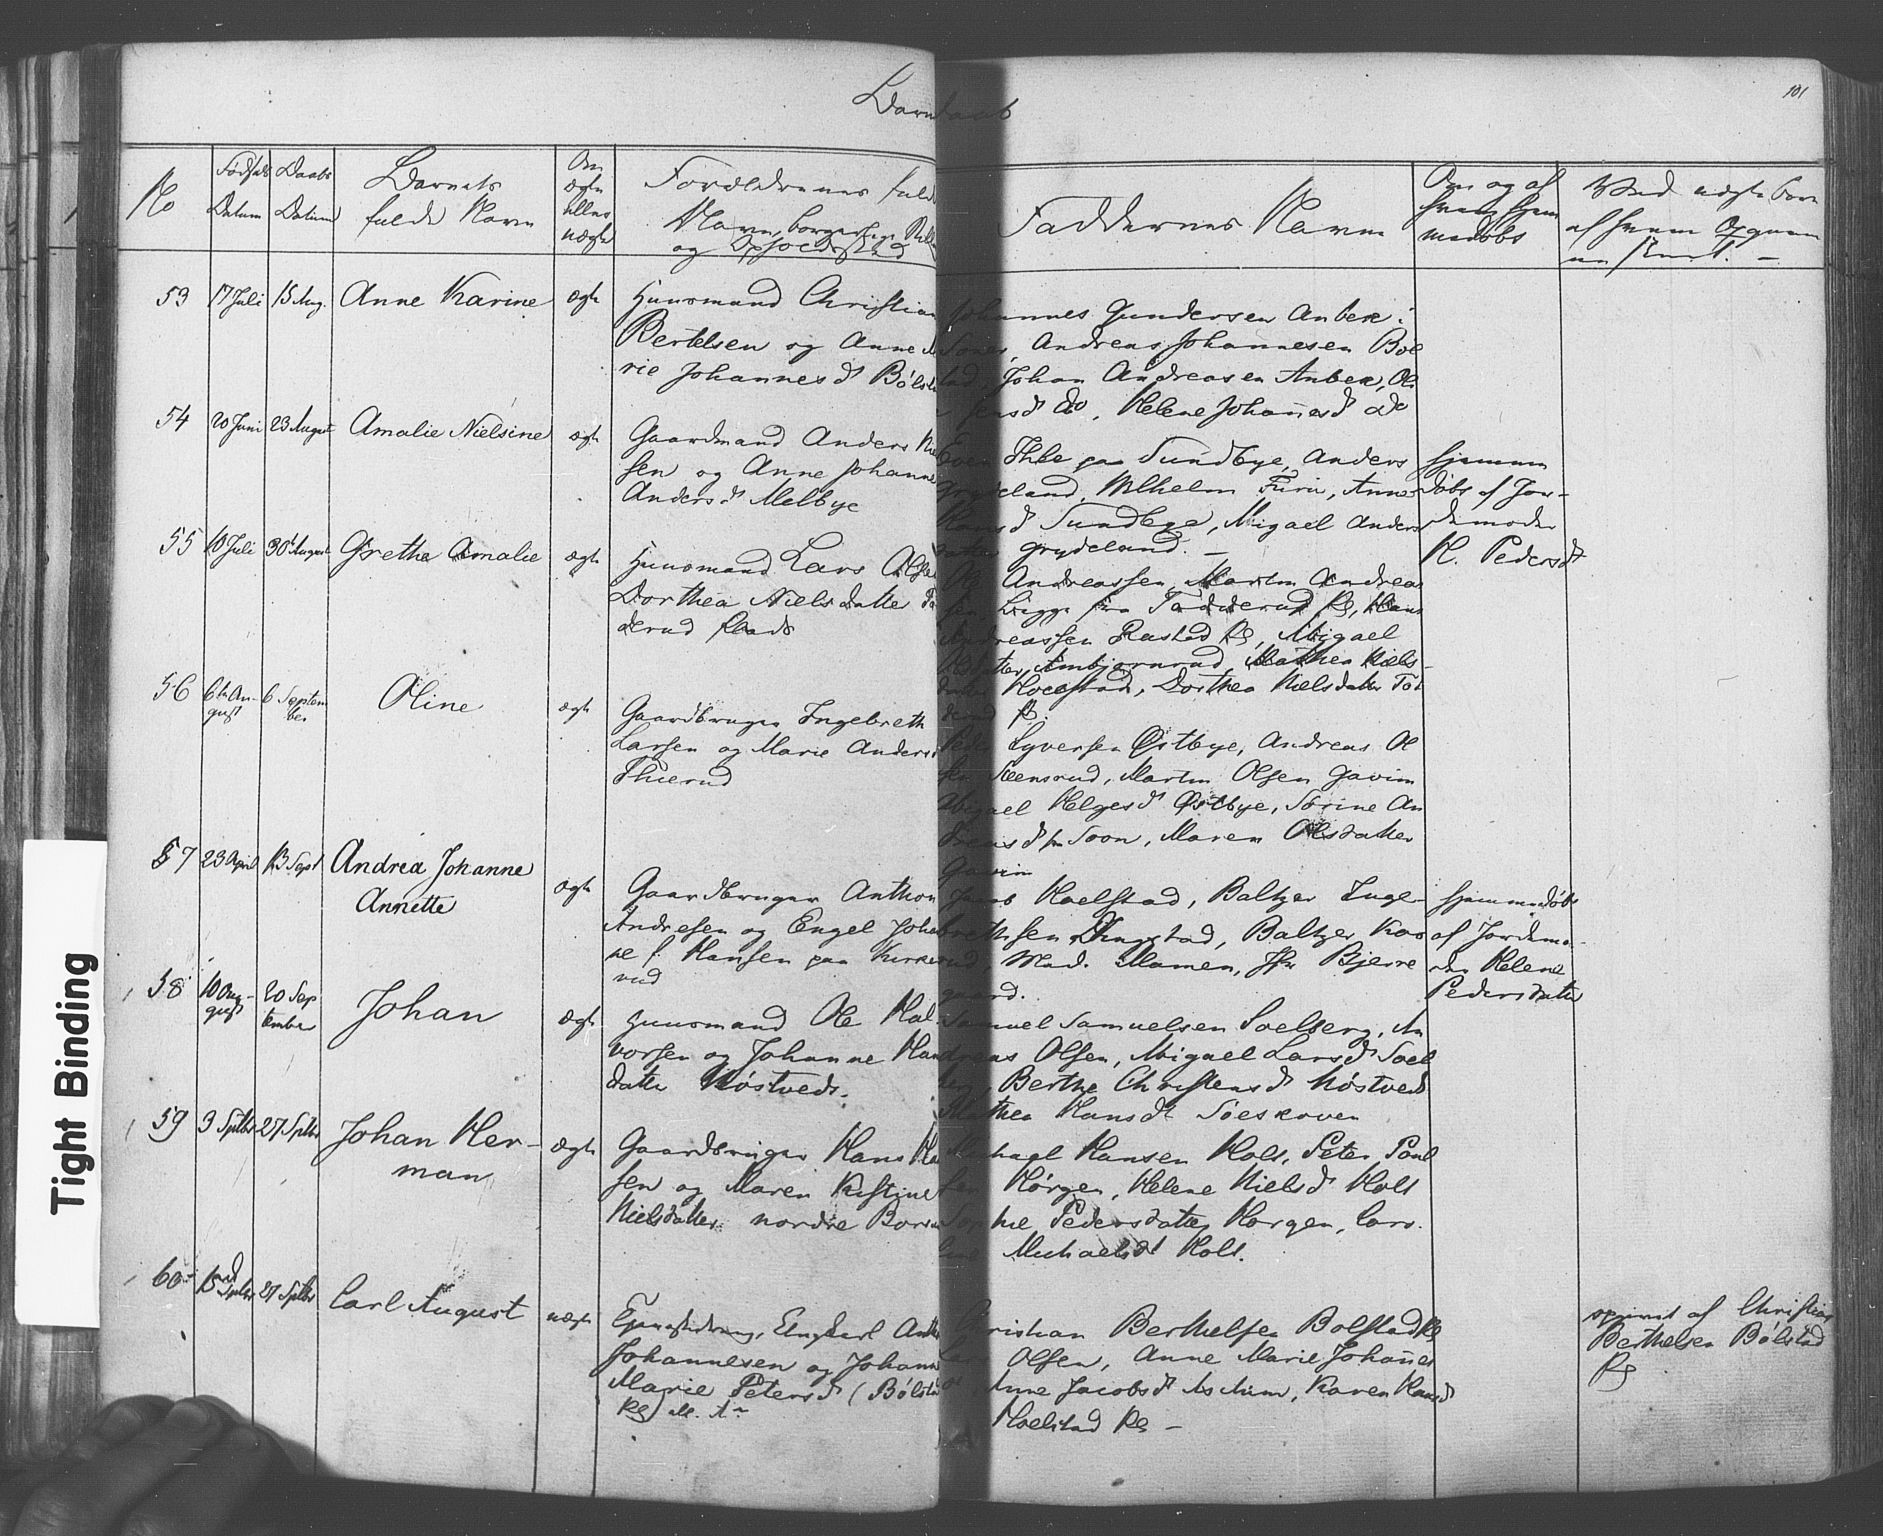 101
Barnedaab
No
Fødsels Datum
Daabs Datum
Barnets fulde Navn
Om ægte eller uægte
Forældrenes fulde Navn, borgerlige og Opholdssted
Faddernes Navne
Om og af hvem hjemmedøbt
Ved uægte Børn af hvem
53 17 Juli 15 Aug. Anne Karine ægte
Huusmand Christian
Bertelsen og Anne
rie Johannesd Bølstad
Johannes Gundersen Anbek i
Andreas Johannesen Bøl
stad, Johan Andreasen Anbek, Ol
do, Helene Johañesd do
54 20 Juni 23 August Amalie Nielsine ægte
Gaardmand Anders Niel
sen og Anne Johanne
Andersd Melbye
Even Ihle paa Sundbye, Anders
Grydeland, Wilhelm Furu, Anne
Hansd Sundbye, Abigael Anders
datter Grydeland. —
hjemme
døbt af Jor-
demoder
K. Pedersd
55 10 Juli 30 August Grethe Amalie ægte
Huusmand Lars Olsen
Dorthea Nielsdatter Tad
derud
Andreassen, Martin Andreas
sen Ligge fra Tadderud Pl, Hans
Andreassen Rustad Pl, Abigael
Olsdatter Ambjørnrud, Mathea Niels-
datter Hoelstad, Dorthea Nielsdatter Tad
derud Pl.
56 6te Au-
gust 6 Septem
ber Oline ægte
Gaardbruger Ingebreth
Larsen og Marie Andersd
Thuerud
Peder Syversen Østbye, Andreas Ol
sen Steensrud, Martin Olsen Gavim
Abigael Helgesd Østbye, Sørine An
dreasd fra Soon, Maren Olsdatter
Gavim
57 23 April 13 Sept Andrea Johanne
Annette ægte
Gaardbruger Anthon
Andresen og Engel Johan
ne f. Hansen paa Kirkerud,
rud
Jacob Hoelstad, Baltzer Inge-
brethsen Dingstad, Baltzer Kor
Mad. Mamen, Jfr Bjerre
gaard.
hjemmedøbt
af Jordemo-
der Helene
Pedersdatter
58 10 Aug-
gust 20 Sep
tember Johan ægte
Huusmand Ole Hal-
vorsen og Johanne Hans
datter Nøstvedt.
Samuel Samuelsen Solberg, An
dreas Olsen, Abigael Larsd Soel
berg, Berthe Christensd Nøstvedt
Mathea Hansd Søeskoven
59 3 Sptbr 27 Sptbr Johan Her-
man ægte
Gaardbruger Hans Han
sen og Maren Kistine
Nielsdatter nordre Borsen
Michael Hansen Holt, Peter Poul
sen Hørgen, Helene Nielsd Holt
Sophie Pedersdatter Horgen, Caro
line Michaelsd Holt.
60 15 Sptbr 27 Sptbr Carl August uægte
Ungkarl Anthon
Johannesen og Johanne
Marie Petersd (Bølstad
Pl)
Christian Berthelsen Bolstad Pl
Lars Olsen, Anne Marie Johañes
d Anne Jacobsd Askim, Karen Hansd
Hoelstad Pl —
opgivet af Christian
Berthelsen Bølstad
Pl
Tight Binding